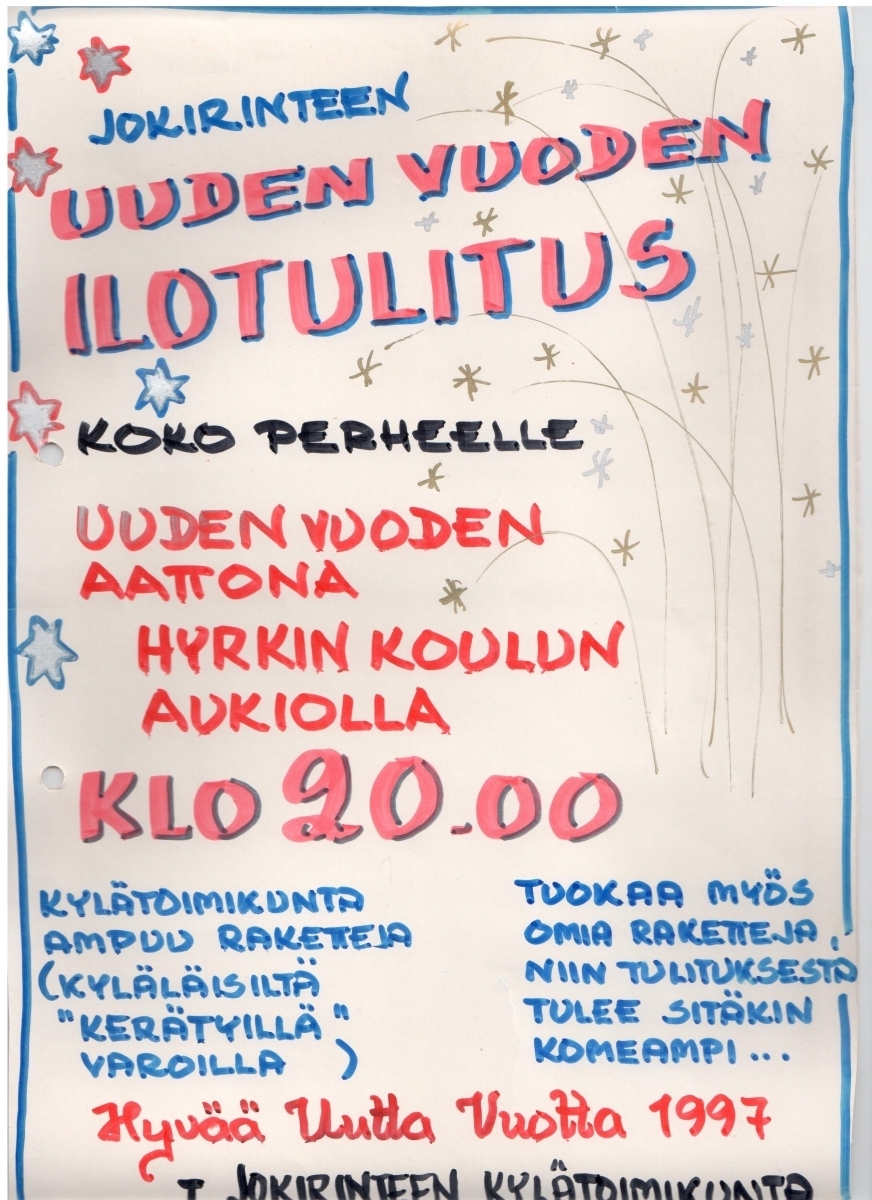 JOKIRINTEEN
UUDEN VUODEN
ILOTULITUS
KOKO PERHEELLE
UUDEN VUODEN
AATTONA
HYRKIN KOULUN
AUKIOLLA
KLO 20.00
KYLÄTOIMIKUNTA
AMPUU RAKETTEJA
(KYLÄLÄISILTÄ
"KERÄTYILLÄ"
VAROILLA )
TUOKAA MYÖS
OMIA RAKETTEJA,
NIIN TULITUKSESTA
TULEE SITÄKIN
KOMEAMPI...
Hyvää Uutta Vuotta 1997
T. JOKIRINTEEN KYLÄTOIMIKUNTA